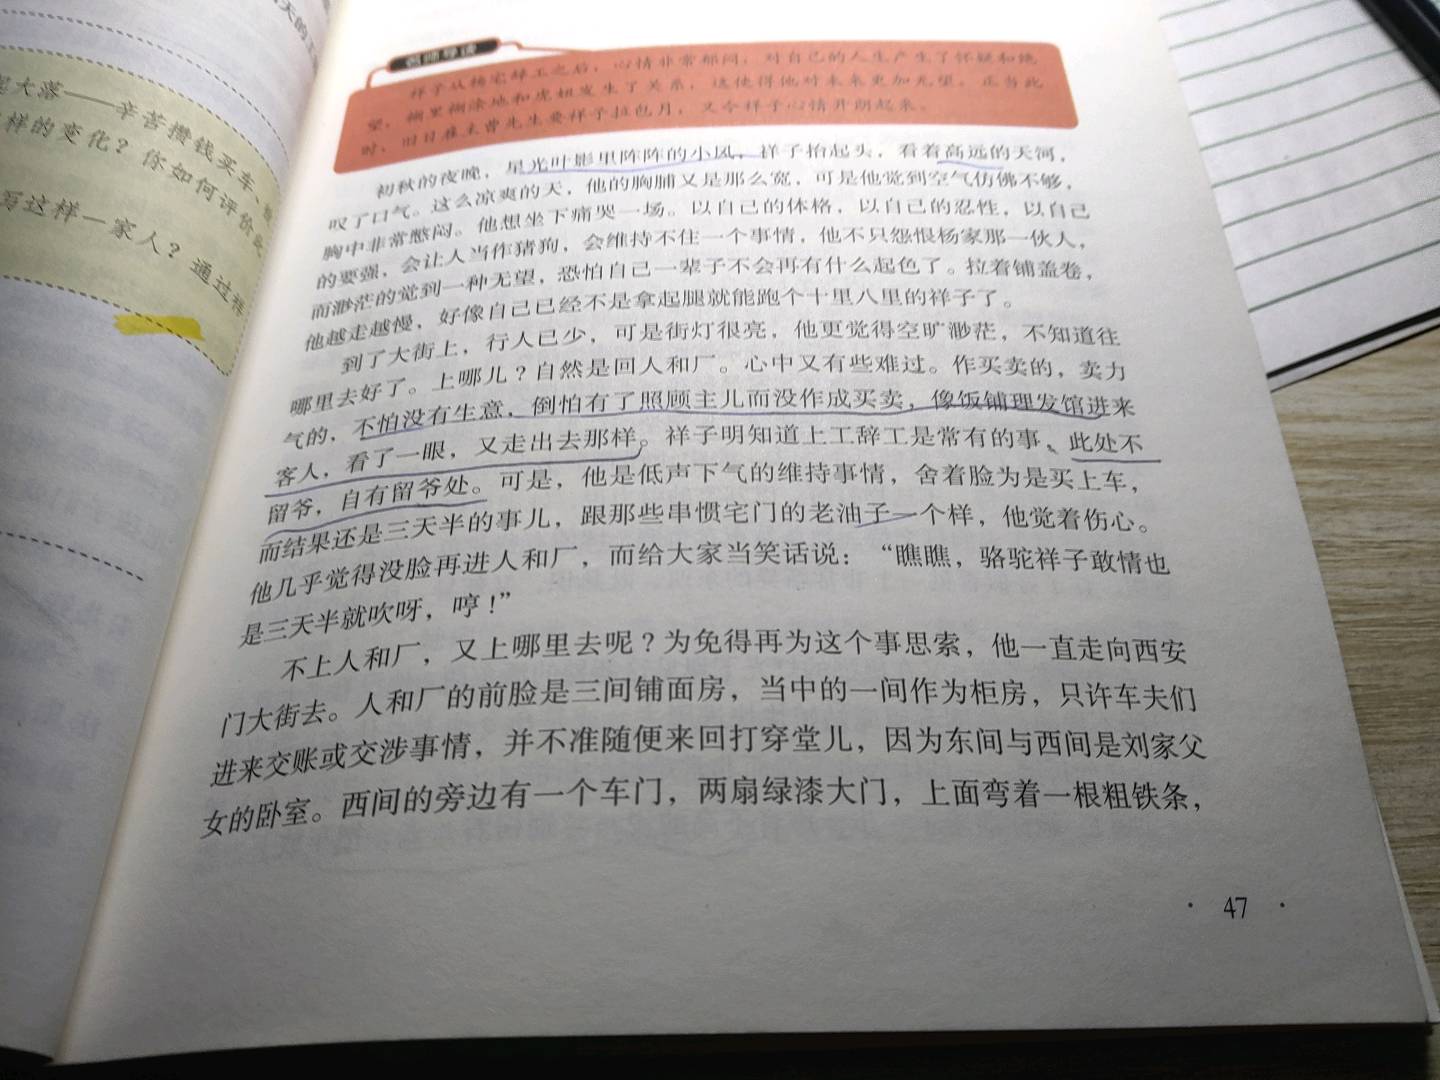 天的工
起大落——辛苦攒钱买车、
样的变化？你如何评价
写这样一家人？通过样
名师导读
祥子从杨宅辞工之后，心情非常郁闷，对自己的人生产生了怀疑和绝
望，糊里糊涂地和虎妞发生了关系，这使得他对未来更加无望。正当此
时，旧日雇主曹先生要祥子拉包月，又令祥子心情开朗起来。
初秋的夜晚，星光叶影里阵阵的小风，祥子抬起头，看着高远的天河，
叹了口气。这么凉爽的天，他的胸脯又是那么宽，可是他觉到空气仿佛不够，
胸中非常憋闷。他想坐下痛哭一场。以自己的体格，以自己的忍性，以自己
的要强，会让人当作猪狗，会维持不住一个事情，他不只怨恨杨家那一伙人，
而渺茫的觉到一种无望，恐怕自己一辈子不会再有什么起色了。拉着铺盖卷，
他越走越慢，好像自己已经不是拿起腿就能跑个十里八里的祥子了。
到了大街上，行人已少，可是街灯很亮，他更觉得空旷渺茫，不知道往
哪里去好了。上哪儿？自然是回人和厂。心中又有些难过。作买卖的，卖力
气的，不怕没有生意，倒怕有了照顾主儿而没作成买卖，像饭铺理发馆进来
客人，看了一眼，又走出去那样。祥子明知道上工辞工是常有的事，此处不
留爷，自有留爷处。可是，他是低声下气的维持事情，舍着脸为是买上车，
而结果还是三天半的事儿，跟那些串惯宅门的老油子一个样，他觉着伤心。
他几乎觉得没脸再进人和厂，而给大家当笑话说：“瞧瞧，骆驼祥子敢情也
是三天半就吹呀，哼！”
不上人和厂，又上哪里去呢？为免得再为这个事思索，他一直走向西安
门大街去。人和厂的前脸是三间铺面房，当中的一间作为柜房，只许车夫们
进来交账或交涉事情，并不准随便来回打穿堂儿，因为东间与西间是刘家父
女的卧室。西间的旁边有一个车门，两扇绿漆大门，上面弯着一根粗铁条，
· 47 ·